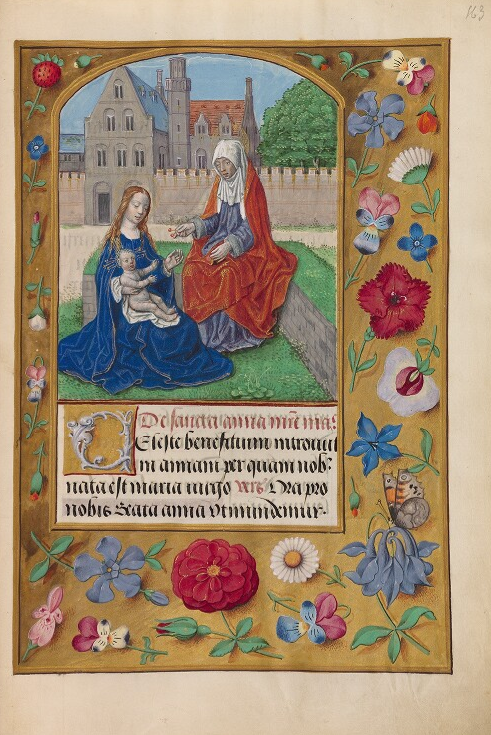 163
De sancta anna mr̄e mar̄.
CEleste benefitium introiuit
in annam per quam nob᷒
nata est maria uirgo vers Ora pro
nobis Beata anna vt mundemur.